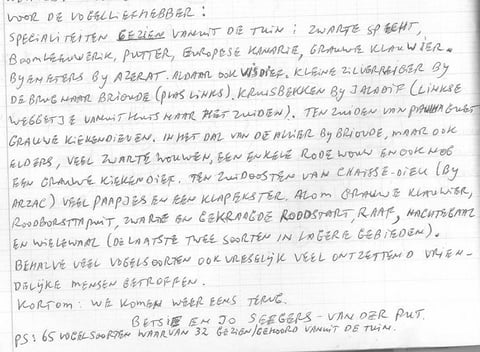 VOOR DE VOGELLIEFHEBBER:
SPECIALITEITEN GEZIEN VANUIT DE TUIN: ZWARTE SPECHT,
BOOMLEEUWERIK, PUTTER, EUROPESE KANARIE, GRAUWE KLAUWIER.
BYENETERS BY AZERAT. ALDAAR OOK VISDIEF. KLEINE ZILVERREIGER BY
DE BRUG NAAR BRIOUDE (PLAS LINKS). KRUISBEKKEN BY JARODIF (LINKSE
WEGGETJE VANUIT HUIS NAAR HET ZUIDEN). TEN ZUIDEN VAN
GRAUWE KIEKENDIEVEN. IN HET DAL VAN DE ALLIER BY BRIOUDE, MAAR OOK
ELDERS, VEEL ZWARTE WOUWEN, EEN ENKELE RODE WOUW EN OOK NOG
EEN GRAUWE KIEKENDIEF. TEN ZUIDOOSTEN VAN CHAISSE-DIEU (BY
ARZAC) VEEL PAAPJES EN EEN KLAPEKSTER. ALOM GRAUWE KLAUWIER,
ROODBORSTTAPUIT, ZWARTE EN GEKRAAGDE ROODSTART, RAAF, NACHTEGAAL
EN WIELEWAAL (DE LAATSTE TWEE SOORTEN IN LAGERE GEBIEDEN).
BEHALVE VEEL VOGELSOORTEN OOK VRESELIJK VEEL ONTZETTEND VRIEN-
DELIJKE MENSEN BETROFFEN.
KORTOM: WE KOMEN WEER EENS TERUG.
BETSIE EN JO SEEGERS-VAN DER PUT.
PS: 65 VOGELSOORTEN WAARVAN 32 GEZIEN/GEHOORD VANUIT DE TUIN.